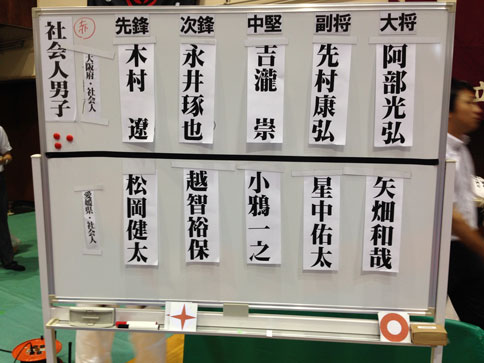 社会人男子
赤
大阪府・社会人
先鋒
次鋒
中堅
副将
大将
木村 遼
永井琢也
吉瀧 崇
先村康弘
阿部光弘
愛媛県・社会人
松岡健太
越智裕保
小鴉一之
星中佑太
矢畑和哉